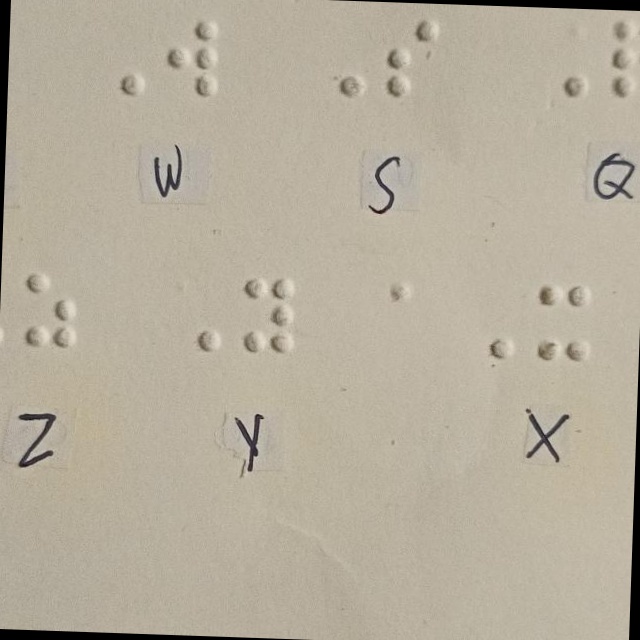 ⠠⠺ ⠠⠎
W S Q
⠠⠵ ⠠⠽ ⠠⠭
Z Y X